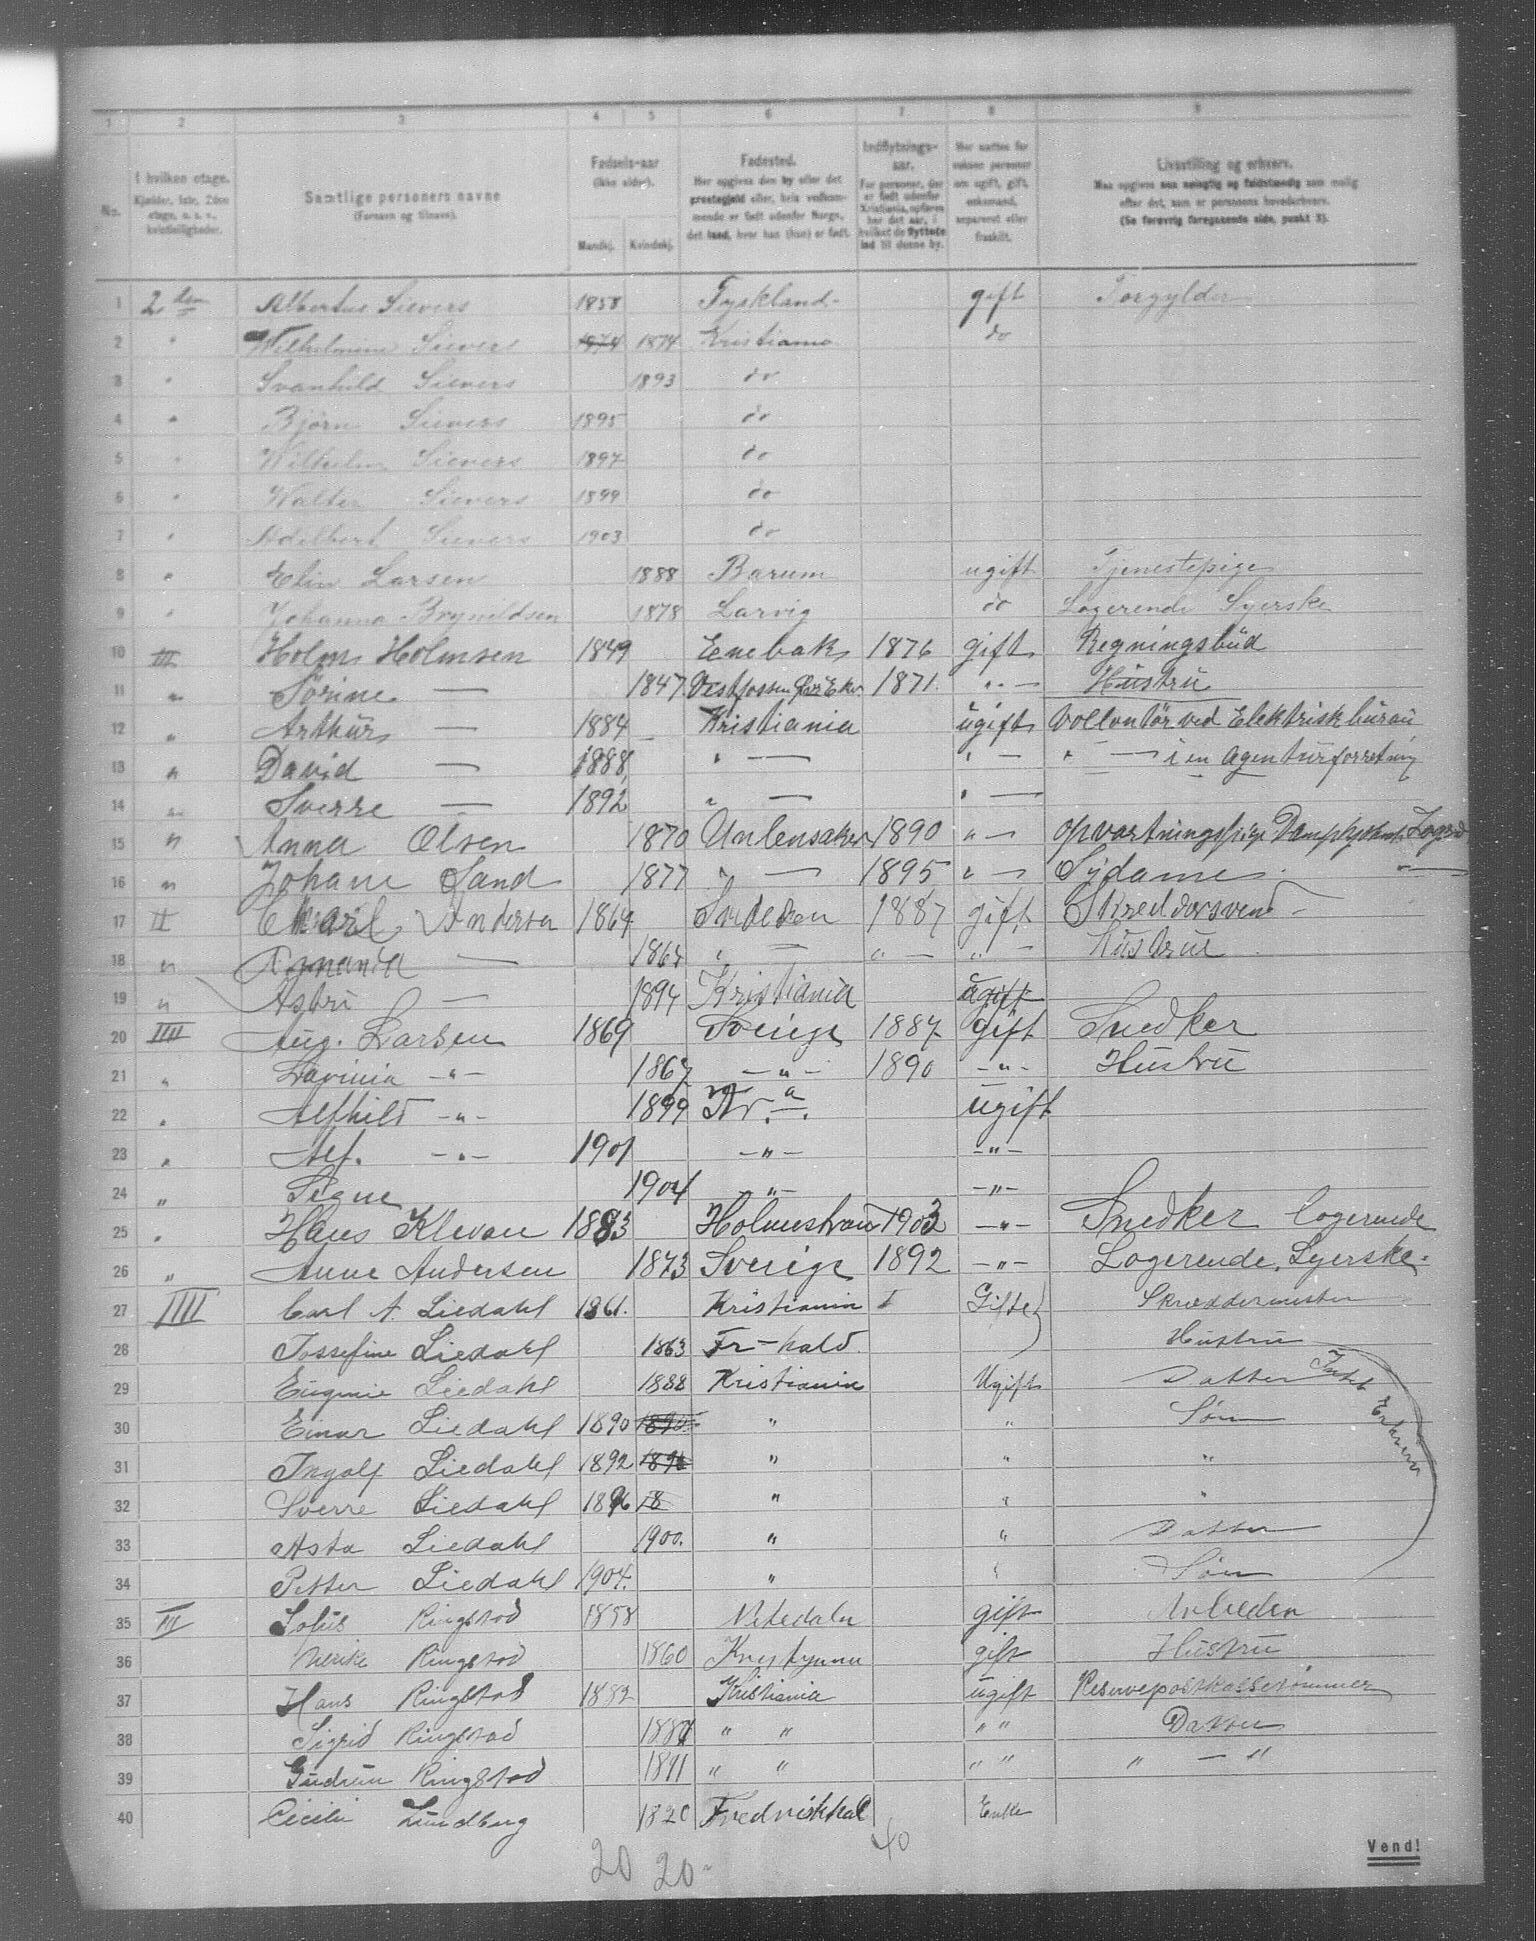 1 2 3 4 5 6 7 8 9
No. I hvilken etage. Kjelder, 1ste, 2den etage, o. s. v., kvistleiligheder. Samtlige personers navne (Fornavn og tilnavn). Fødsels-aar (ikke alder). Mandkj. Kvindekj. Fødested. Her opgives den by eller det prestegjeld eller, hvis vedkommende er født udenfor Norge, det land, hvor han (hun) er født. Indflytnings-aar. For personer, der er født udenfor Kristiania, opføres her det aar, i hvilket de flyttede ind til denne by. Her sættes for voksne personer om ugift, gift, enkemand, separeret eller fraskilt. Livsstilling og erhverv. Maa opgives saa nøiagtig og fuldstændig som mulig efter det, som er personens hovederhverv. (Se forøvrig foregaaende side, punkt 3).
1 2den Albertus Sievers 1858 Tyskland gift Forgylder
2 " Wilhelmine Sievers 1874 1874 Kristiania do
3 " Svanhild Sievers 1893 do
4 " Bjørn Sievers 1895 do
5 " Wilhelm Sievers 1897 do
6 " Walter Sievers 1899 do
7 " Adelbert Sievers 1903 do
8 " Elin Larsen 1888 Barum ugift Tjenestepige
9 " Johanna Brynildsen 1878 Larvig do Logerende Syerske
10 III Holm Holmsen 1849 Enebak 1876 gift Regningsbud
11 " Sørine — 1847 Vestfossen Eker 1871 " — Hustru
12 " Arthur — 1884 Kristiania ugift Vollontør ved Elektrisk bureau
13 " David — 1888 " — " — " — i en Agenturforretning
14 " Sverre — 1892 " — " —
15 " Anna Olsen 1870 Ullensaker 1890 " — Opvartningspige Logerd
16 " Johane Sand 1877 " — 1895 " — Sydame "—
17 II Andersen 1864 Sveden 1887 gift Skreddersvend
18 " — 1864 " — " — " — Hustru
19 " Astri — 1894 Kristiania ugift
20 IIII Aug. Larsen 1869 Sverige 1887 gift Snedker
21 " Lavinia -"- 1867 -"- 1890 -"- Hustru
22 " Alfhild -"- 1899 Kr.a ugift
23 " Alf. -"- 1901 -"- -"-
24 " Signe 1904 -"- -"-
25 " Hans Klevan 1883 Holmestrand 1903 -"- Snedker logerende
26 " Anne Andersen 1873 Sverige 1892 -"- Logerende, Syerske.
27 IIII Carl A. Liedahl 1861. Kristiania Gifte Skræddermester
28 Jossefine Liedahl 1863 Fr-hald Hustru
29 Eugenie Liedahl 1888 Kristiania Ugift Datter Intet Erhverv
30 Einar Liedahl 1890 1890 " " Søn
31 Ingolf Liedahl 1892 " " "
32 Sverre Liedahl 1896 18 " " "
33 Asta Liedahl 1900. " " Datter
34 Petter Liedahl 1904. " " Søn
35 III Ringstad 1858 Nitedalen gift
36 Ulrike Ringstad 1860 gift Hustru
37 Hans Ringstad 1882 Kristiania ugift Reservepostkassetømmer
38 Sigrid Ringstad " " " " Datter
39 Gudrun Ringstad 1891 " " " " " — "
40 Cicilie Lundberg 1820 Fredrikhal Enke
20 20 40
Vend!